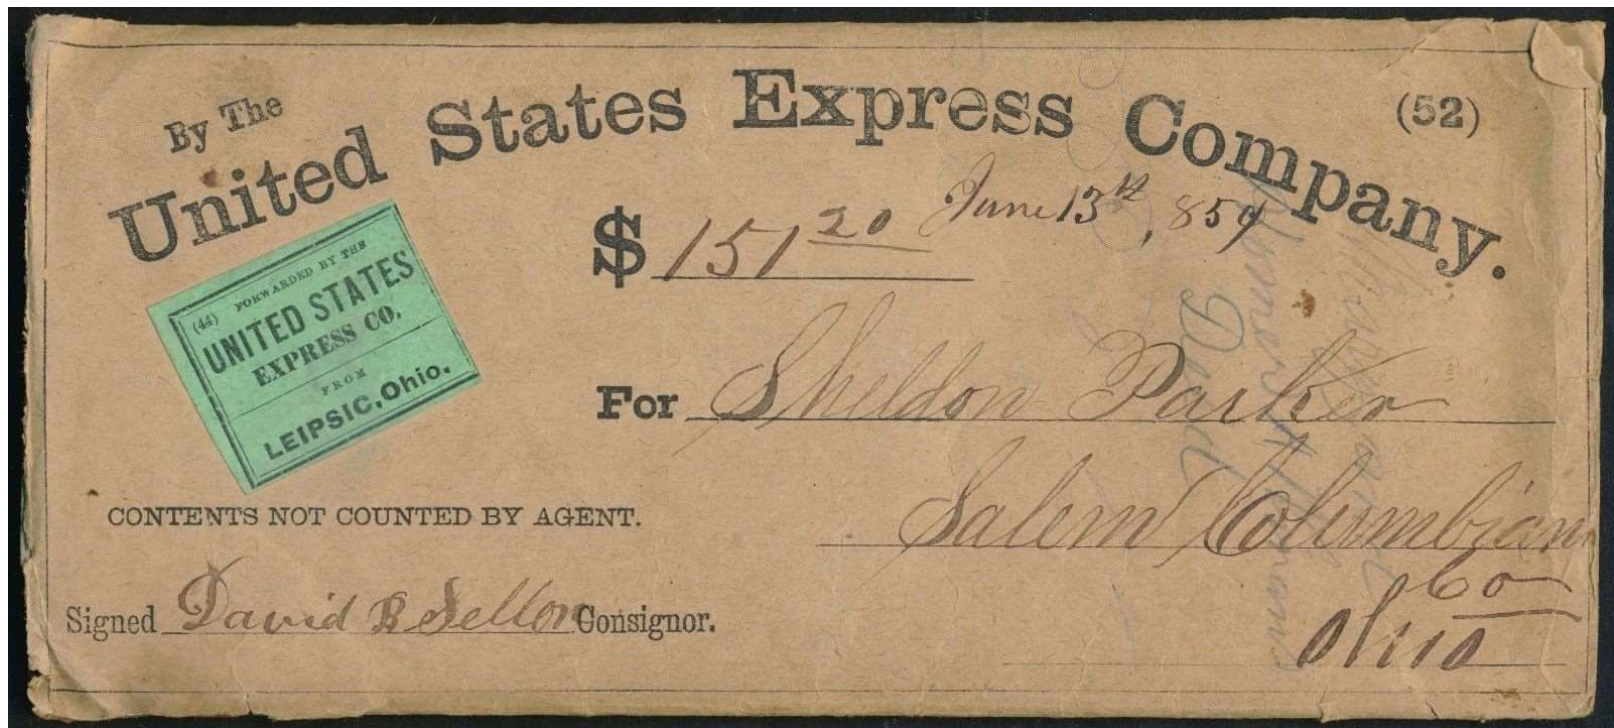 (52)
By The
United States Express Company.
June 13th, 859
$ 151 20
(44) FORWARDED BY THE
UNITED STATES
EXPRESS CO.
FROM
LEIPSIC, Ohio.
For Sheldon Parker
Salem Columbiana
Co
Ohio
CONTENTS NOT COUNTED BY AGENT.
Signed David B Sellon Consignor.
Deed